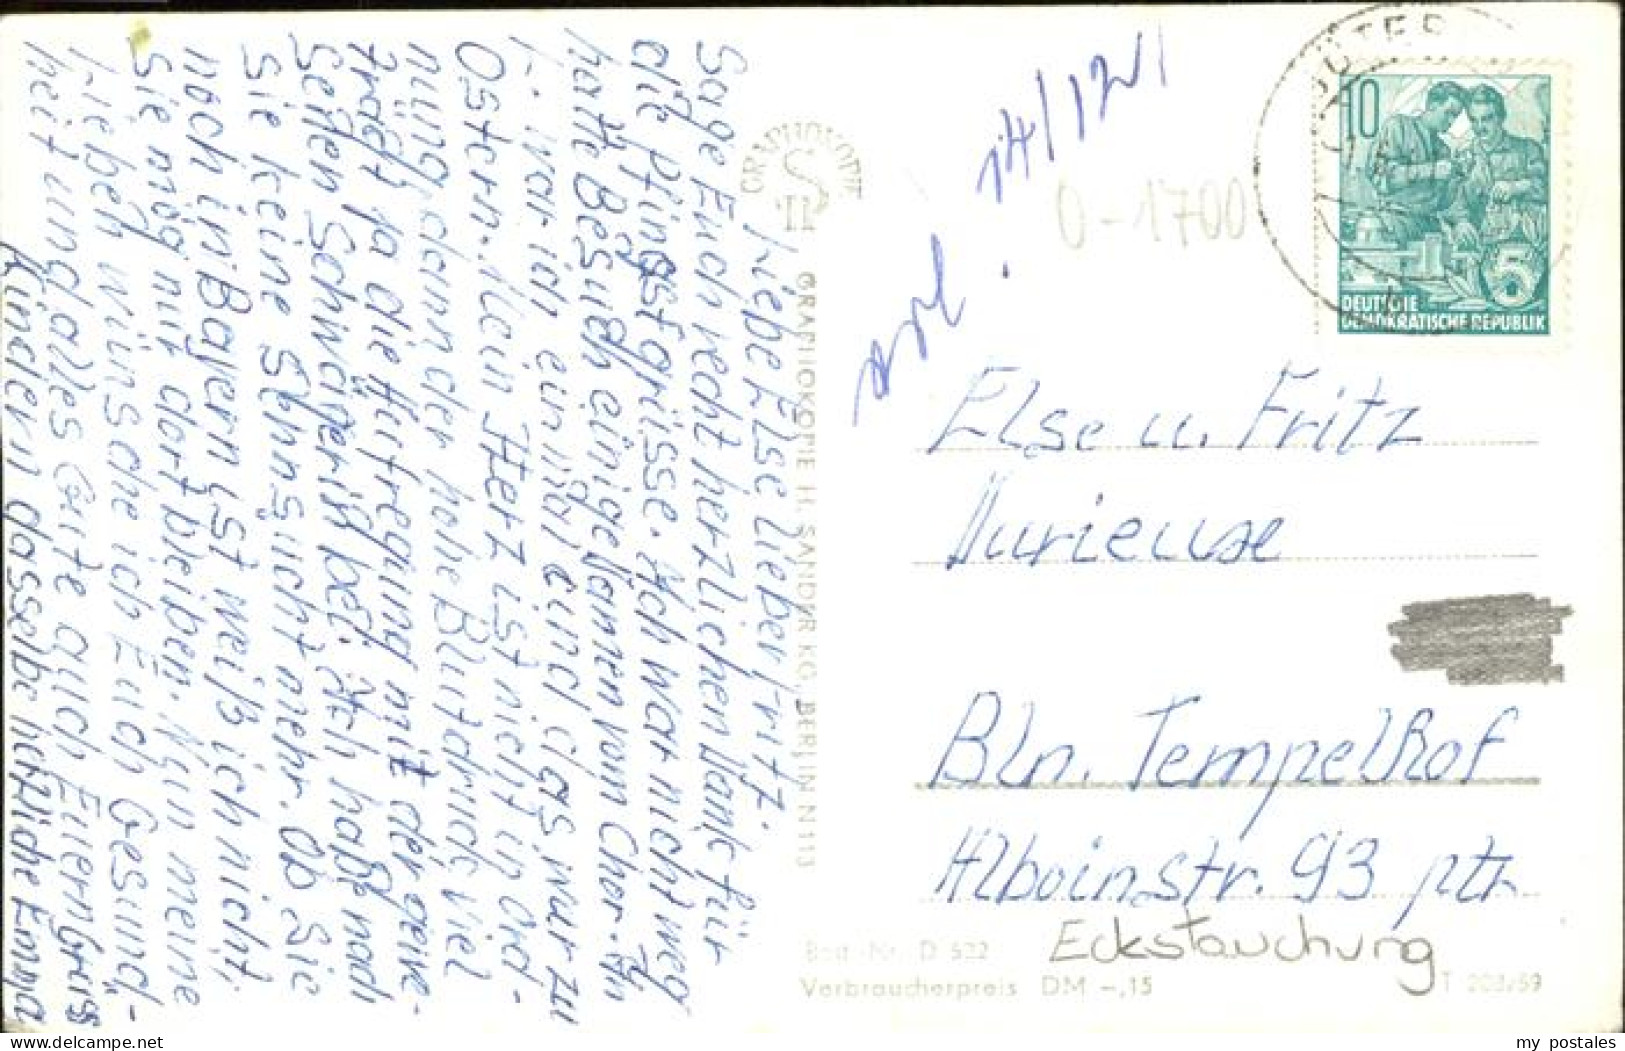 Liebe Else lieber Fritz.
Sage Euch recht herzlichen Dank für
die Pfingstgrüsse. Ich war nicht weg
hatte Besuch einige Damen vom Chor. In
J. war ich einmal und das war zu
Ostern. Mein Herz ist nicht in Ord-
nung dann der hohe Blutdruck viel
macht ja die Aufregung mit der
seiten Schwägerin bei. Ich habe noch
Sie keine Sehnsucht mehr. Ob Sie
noch in Bayern ist weiß ich nicht,
Sie mög nur dort bleiben. Nun meine
Lieben wünsche ich Euch Gesund-
heit und alles Gute auch Euern
Kindern dasselbe herzliche Grüss
Emma
GRAPHOKOPIE
H
S
GRAPHOKOPIE H. SANDER KG., BERLIN N 113
erl. 14/12
0-1700
JÜTERB
10
5
DEUTSCHE
DEMOKRATISCHE REPUBLIK
Else u. Fritz
Bln. Tempelhof
Alboinstr. 93 ptr
Eckstauchung
Best.-Nr. D 522
Verbraucherpreis DM -,15
T 208/59
my postales